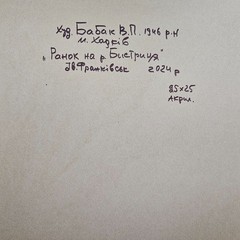 Худ. Бабак В.П. 1946 р.н
м. Харків
„Ранок на р. Бистриця"
Ів. Франківськ 2024 р
25x25
Акрил.